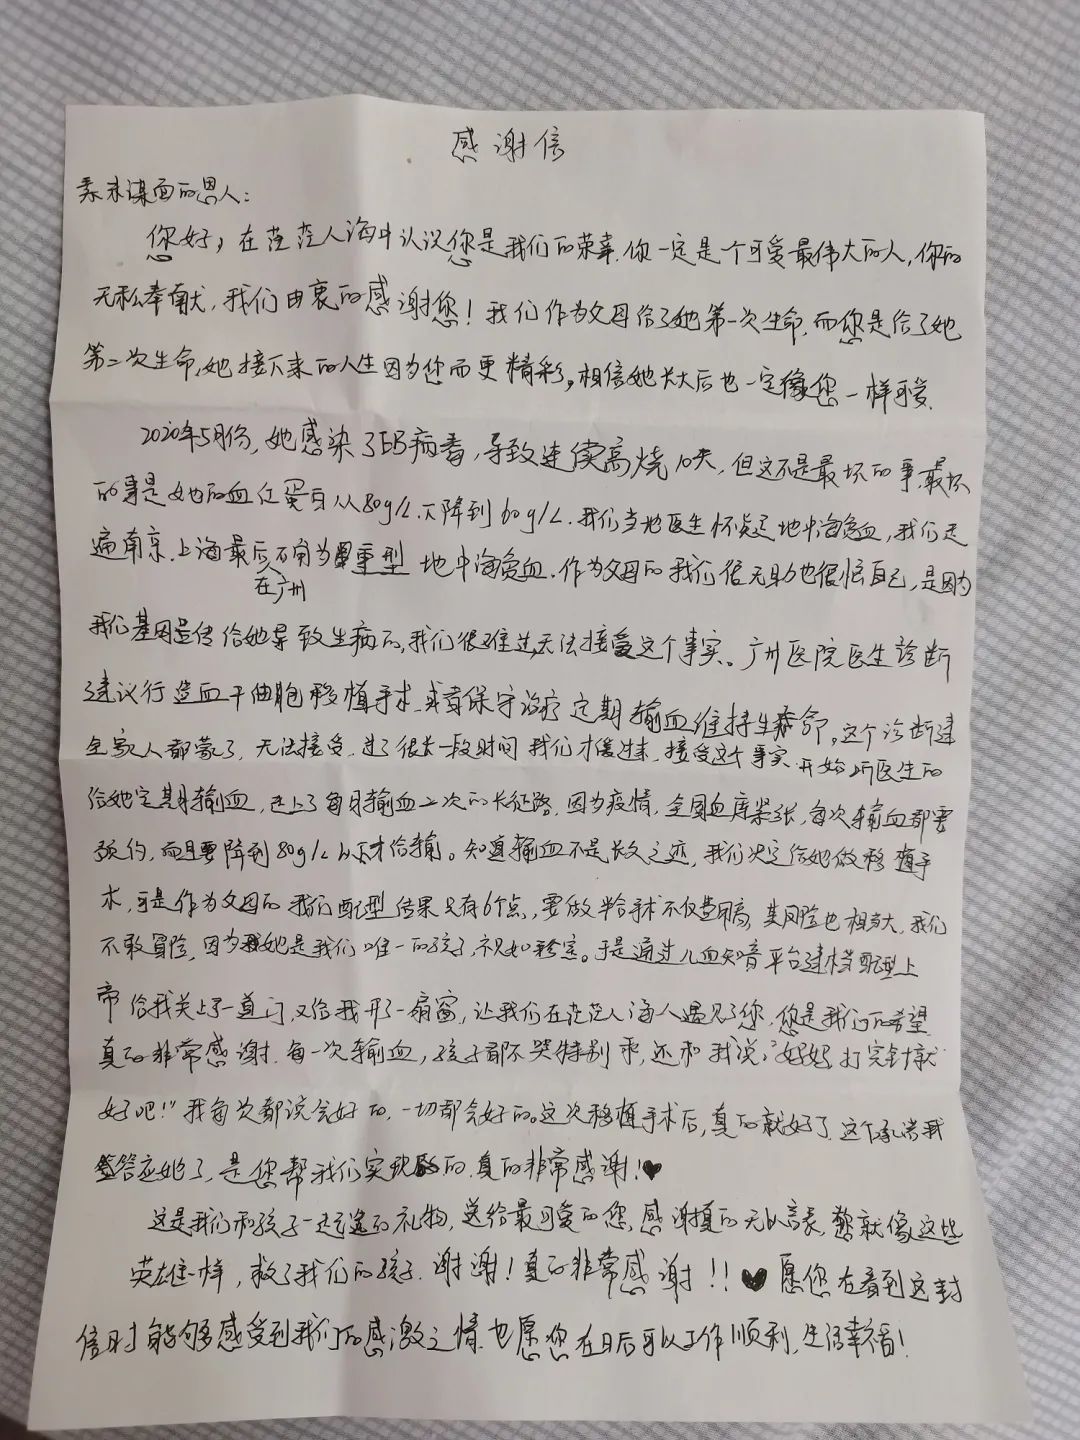 感谢信
素未谋面的恩人：
您好，在茫茫人海中认识您是我们的荣幸．你一定是个可爱最伟大的人，你的
无私奉献，我们由衷的感谢您！我们作为父母给了她第一次生命．而您是给了她
第二次生命，她接下来的人生因为您而更精彩。相信她长大后也一定像您一样可爱．
2020年5月份，她感染了EB病毒，导致连续高烧10天，但这不是最坏的事．最坏
的事是她的血红蛋白从80g/L．下降到60g/L．我们当地医生怀疑是地中海贫血，我们走
遍南京．上海最后在广州不为重型地中海贫血．作为父母的我们很无助也很恨自己，是因为
我们基因遗传给她导致生病的，我们很难过，无法接受这个事实。广州医院医生诊断
建议行造血干细胞移植手术．或者保守治疗定期输血维持生命．这个诊断
全家人都蒙了，无法接受．过了很长一段时间我们才缓过来，接受这个事实．开始听医生的
给她定期输血，走上了每月输血二次的长征路．因为疫情，全国血库紧张，每次输血都要
预约，而且要降到80g/L以下才给输。知道输血不是长久之迹，我们决定给她做移植手
术，可是作为父母的我们配型结果只有6个点，要做半合手术不仅费用高，风险也相当大．我们
不敢冒险，因为她是我们唯一的孩子，视如珍宝。于是通过儿血知音平台建档配型上
帝给我关上了一道门，又给我开了一扇窗，让我们在茫茫人海人遇见了您，您是我们的希望
真的非常感谢．每一次输血，孩子都不哭特别乖，还和我说：“妈妈，打完针就
好吧！”我每次都说会好的，一切都会好的。这次移植手术后，真的就好了．这个承诺我
答应她了，是您帮我们实现的．真的非常感谢！♥
这是我们和孩子一起选的礼物，送给最可爱的您，感谢真的无以言表，您就像这些
英雄一样，救了我们的孩子．谢谢！真的非常感谢！！♥愿您在看到这封
信时能够感受到我们的感激之情．也愿您在日后可以工作顺利，生活幸福！